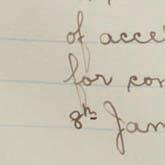 of acce
for con
8th Jan